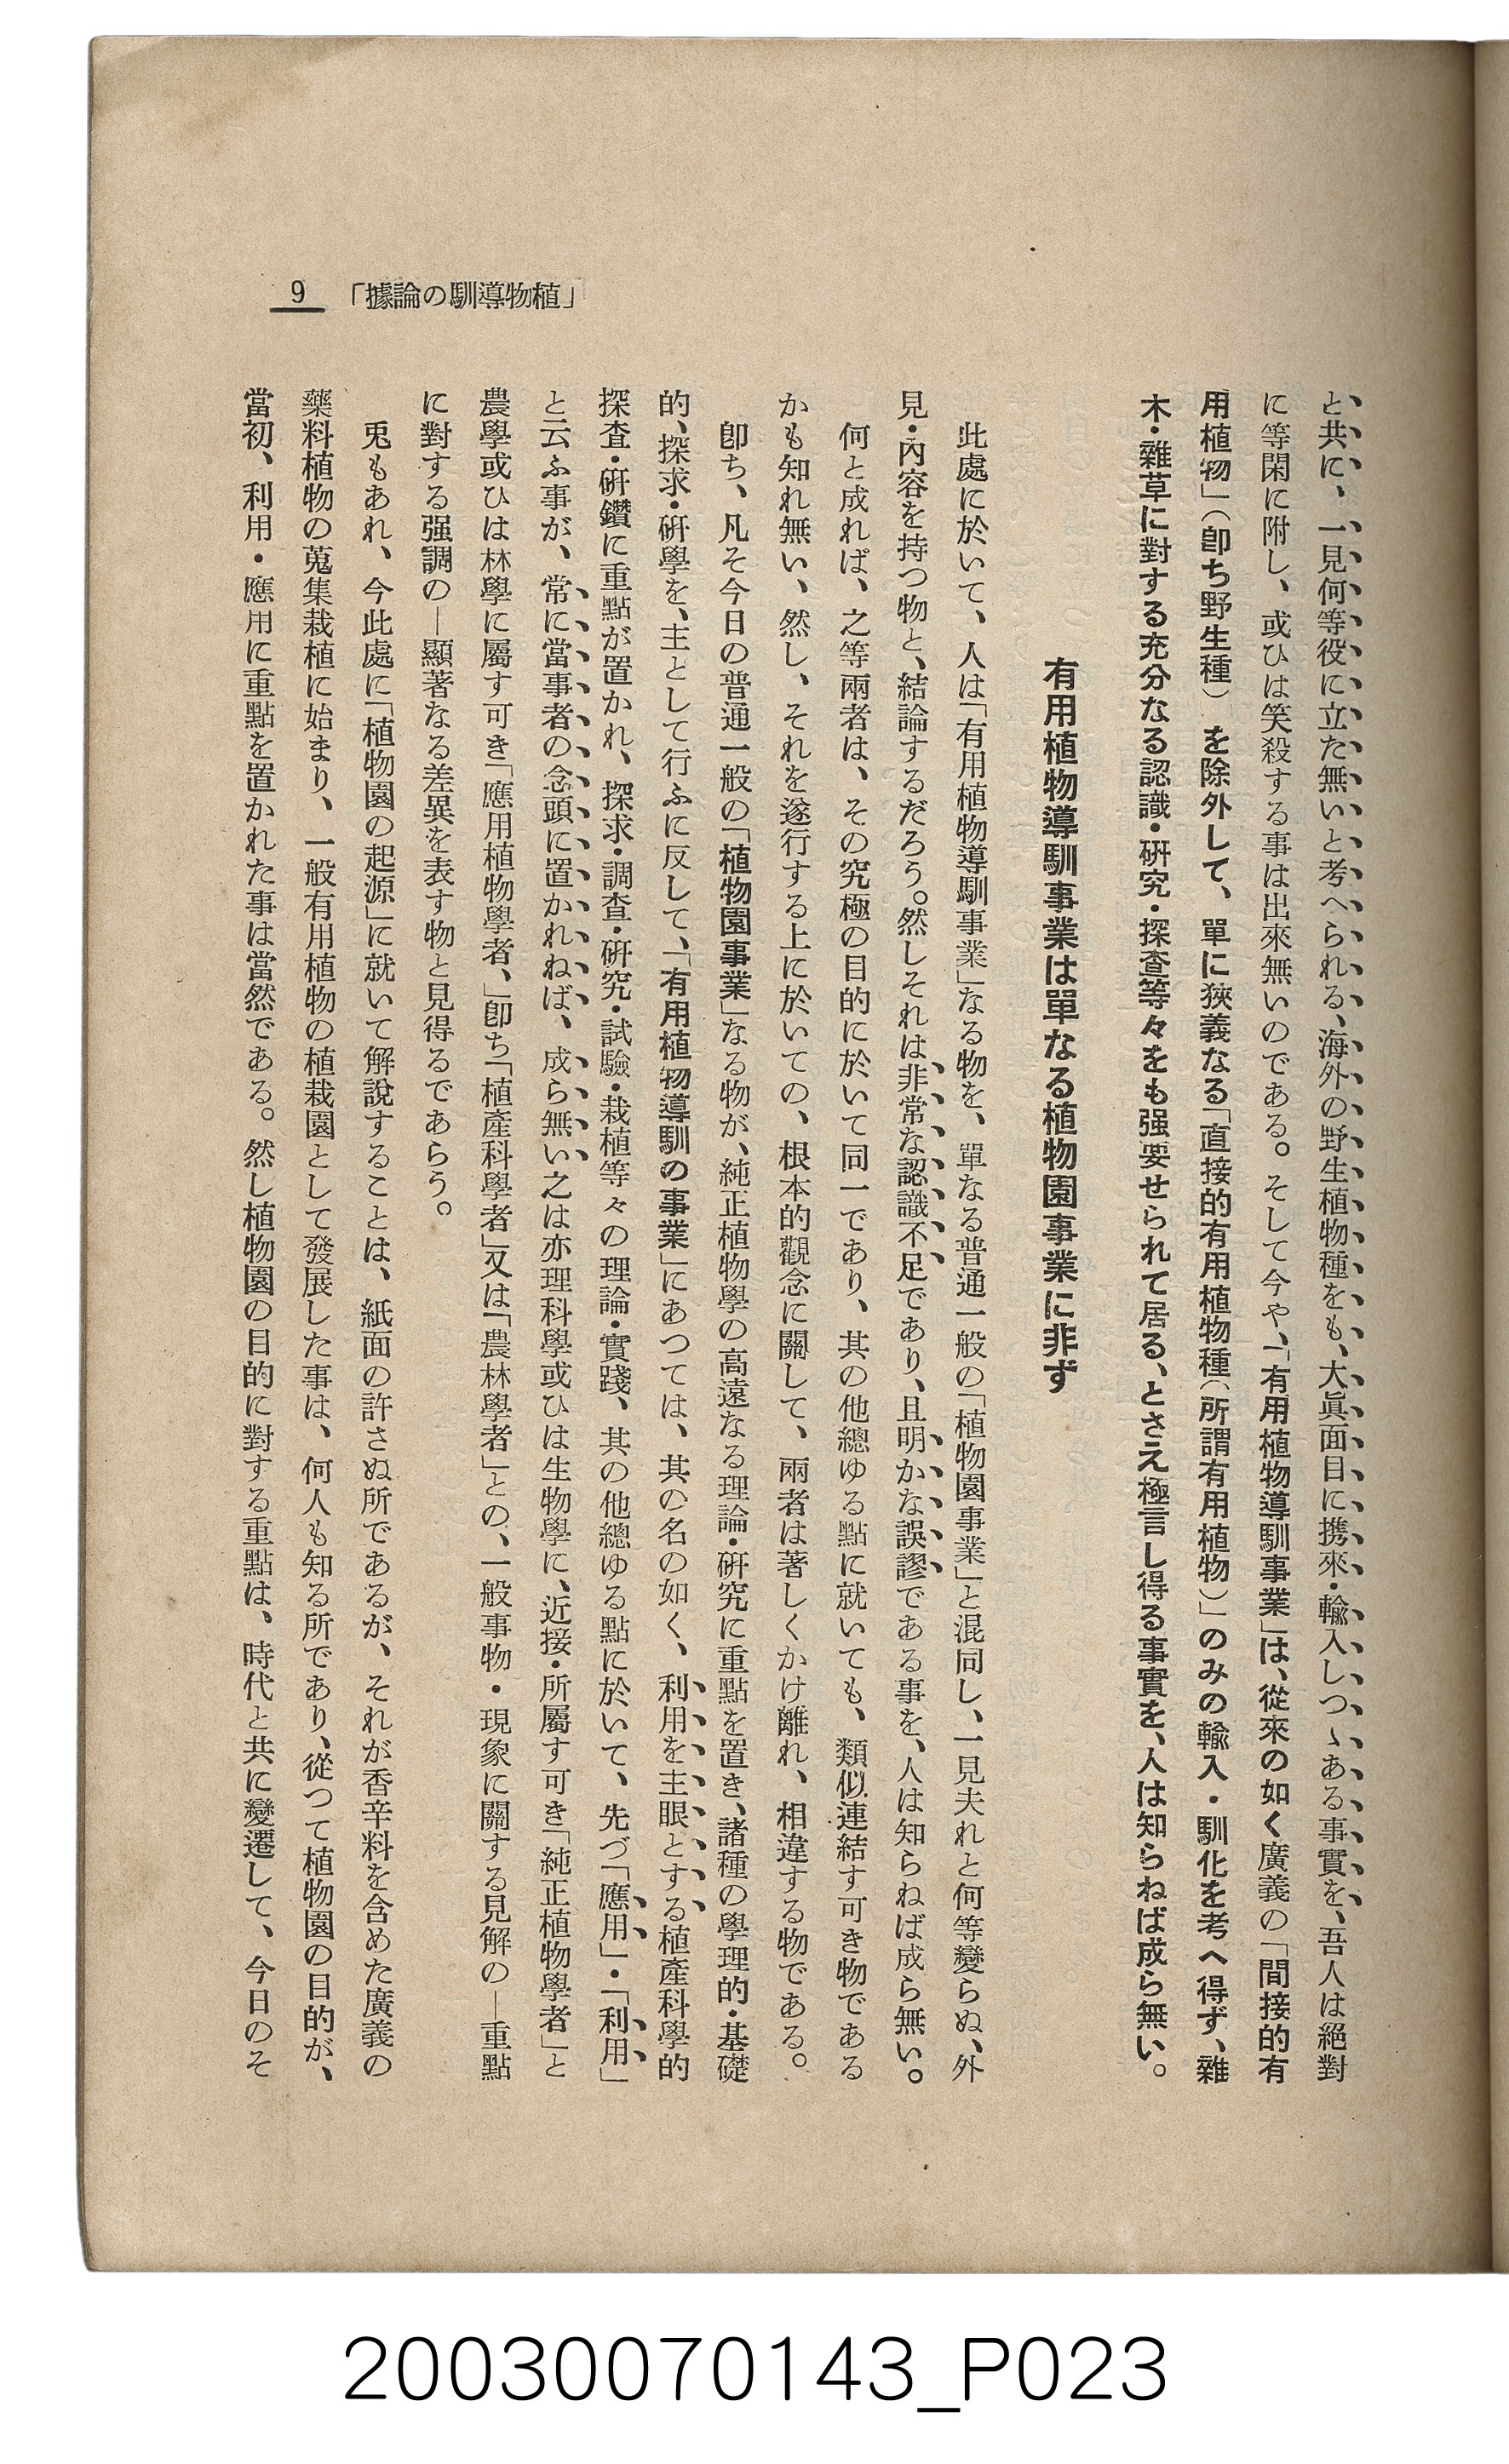 9 「據論の馴導物植」
と共に、一見何等役に立た無いと考へられる、海外の野生植物種をも、大眞面目に携來・輸入しつゝある事實を、吾人は絕對
に等閑に附し、或ひは笑殺する事は出來無いのである。そして今や、「有用植物導馴事業」は、從來の如く廣義の「間接的有
用植物」(卽ち野生種)を除外して、單に狹義なる「直接的有用植物種(所謂有用植物)」のみの輸入・馴化を考へ得ず、雜
木・雜草に對する充分なる認識・硏究・探査等々をも强要せられて居る、とさえ極言し得る事實を、人は知らねば成ら無い。
有用植物導馴事業は單なる植物園事業に非ず
此處に於いて、人は「有用植物導馴事業」なる物を、單なる普通一般の「植物園事業」と混同し、一見夫れと何等變らぬ、外
見・內容を持つ物と、結論するだろう。然しそれは非常な認識不足であり、且明かな誤謬である事を、人は知らねば成ら無い。
何と成れば、之等兩者は、その究極の目的に於いて同一であり、其の他總ゆる點に就いても、類似連結す可き物である
かも知れ無い、然し、それを遂行する上に於いての、根本的觀念に關して、兩者は著しくかけ離れ、相違する物である。
卽ち、凡そ今日の普通一般の「植物園事業」なる物が、純正植物學の高遠なる理論・硏究に重點を置き、諸種の學理的・基礎
的、探求・硏學を、主として行ふに反して、「有用植物導馴の事業」にあつては、其の名の如く、利用を主眼とする植產科學的
探査・硏鑽に重點が置かれ、探求・調査・硏究・試驗・栽植等々の理論・實踐、其の他總ゆる點に於いて、先づ「應用」・「利用」
と云ふ事が、常に當事者の念頭に置かれねば、成ら無い之は亦理科學或ひは生物學に、近接・所屬す可き「純正植物學者」と
農學或ひは林學に屬す可き「應用植物學者、」卽ち「植產科學者」又は「農林學者」との、一般事物・現象に關する見解の―重點
に對する强調の―顯著なる差異を表す物と見得るであらう。
兎もあれ、今此處に「植物園の起源」に就いて解說することは、紙面の許さぬ所であるが、それが香辛料を含めた廣義の
藥料植物の蒐集栽植に始まり、一般有用植物の植栽園として發展した事は、何人も知る所であり、從つて植物園の目的が、
當初、利用・應用に重點を置かれた事は當然である。然し植物園の目的に對する重點は、時代と共に變遷して、今日のそ
20030070143_P023